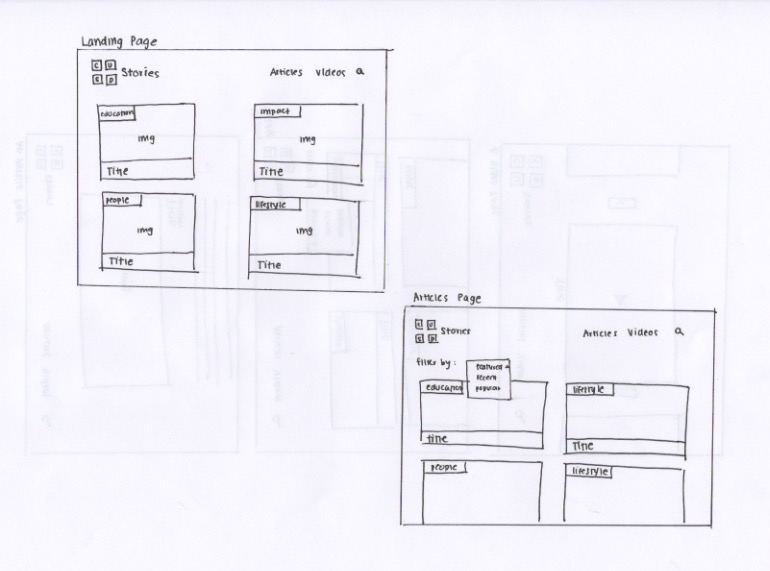 Landing Page
C U
S P Stories Articles Videos
education impact
img img
Title Title
people lifestyle
img img
Title Title
Articles Page
C U
S P Stories Articles Videos
filter by: featured
recent
popular
education lifestyle
title Title
people lifestyle